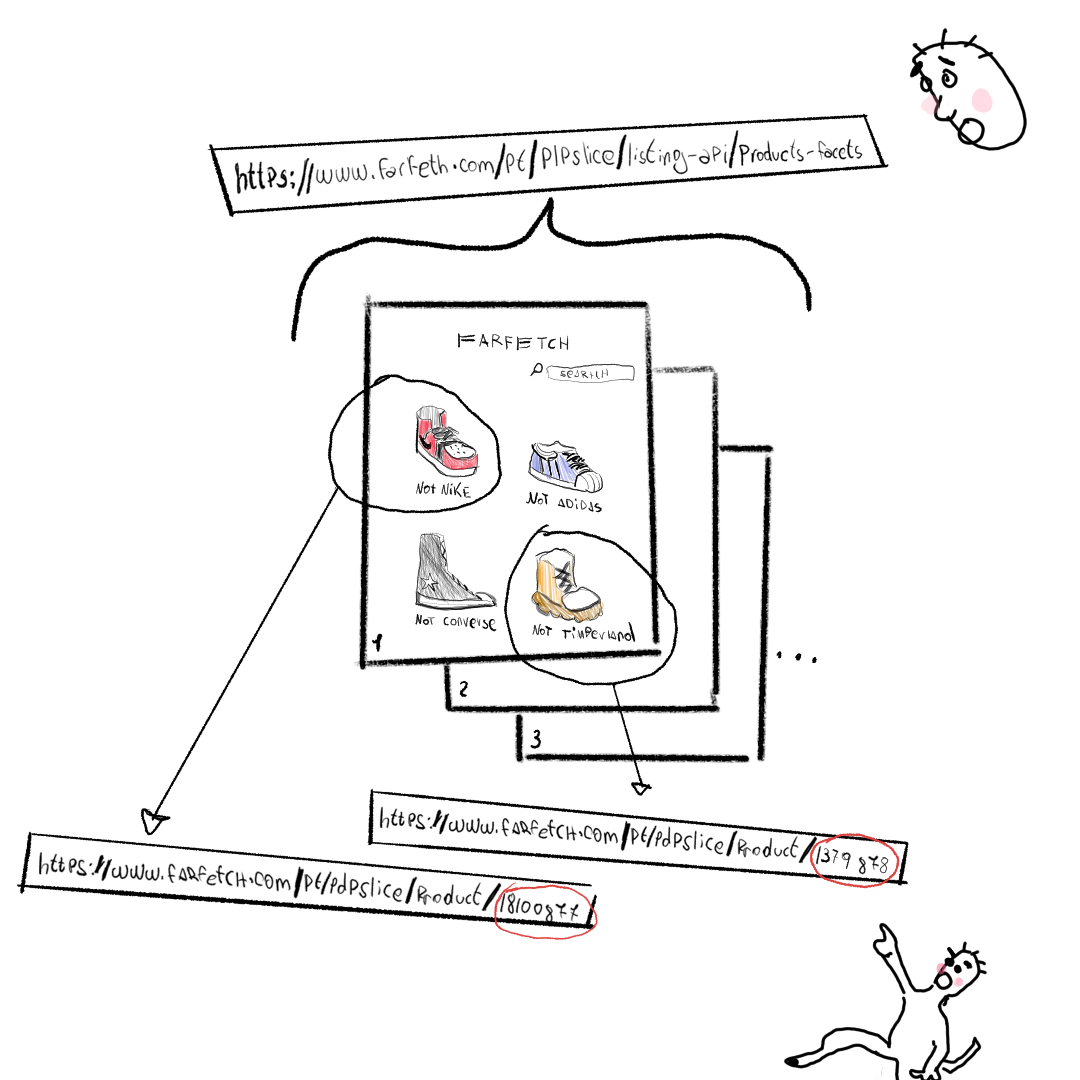 https://www.farfeth.com/pt/plpslice/listing-api/Products-facets
FARFETCH
SEARCH
NOT NIKE
NOT ADIDAS
NOT CONVERSE
NOT TIMPERLAND
1
2
3
...
https://www.FARFETCH.COM/Pt/PdPslice/Product/1379878
https://www.FARFETCH.COM/Pt/PdPslice/Product/18100877